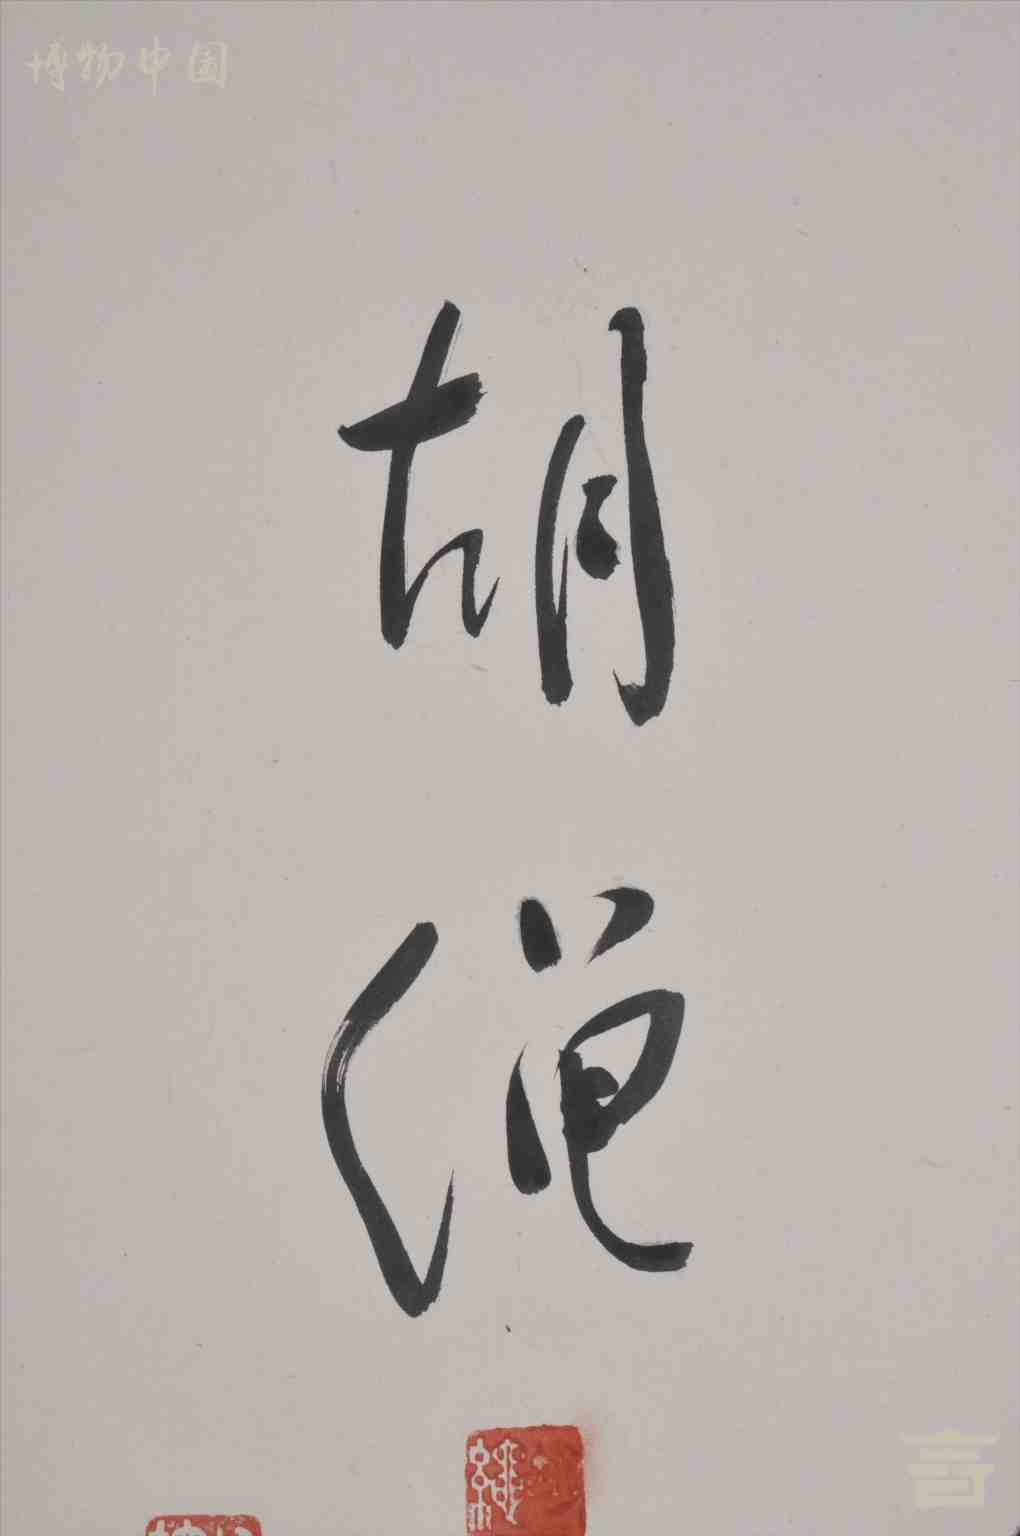 博物中国
胡绳